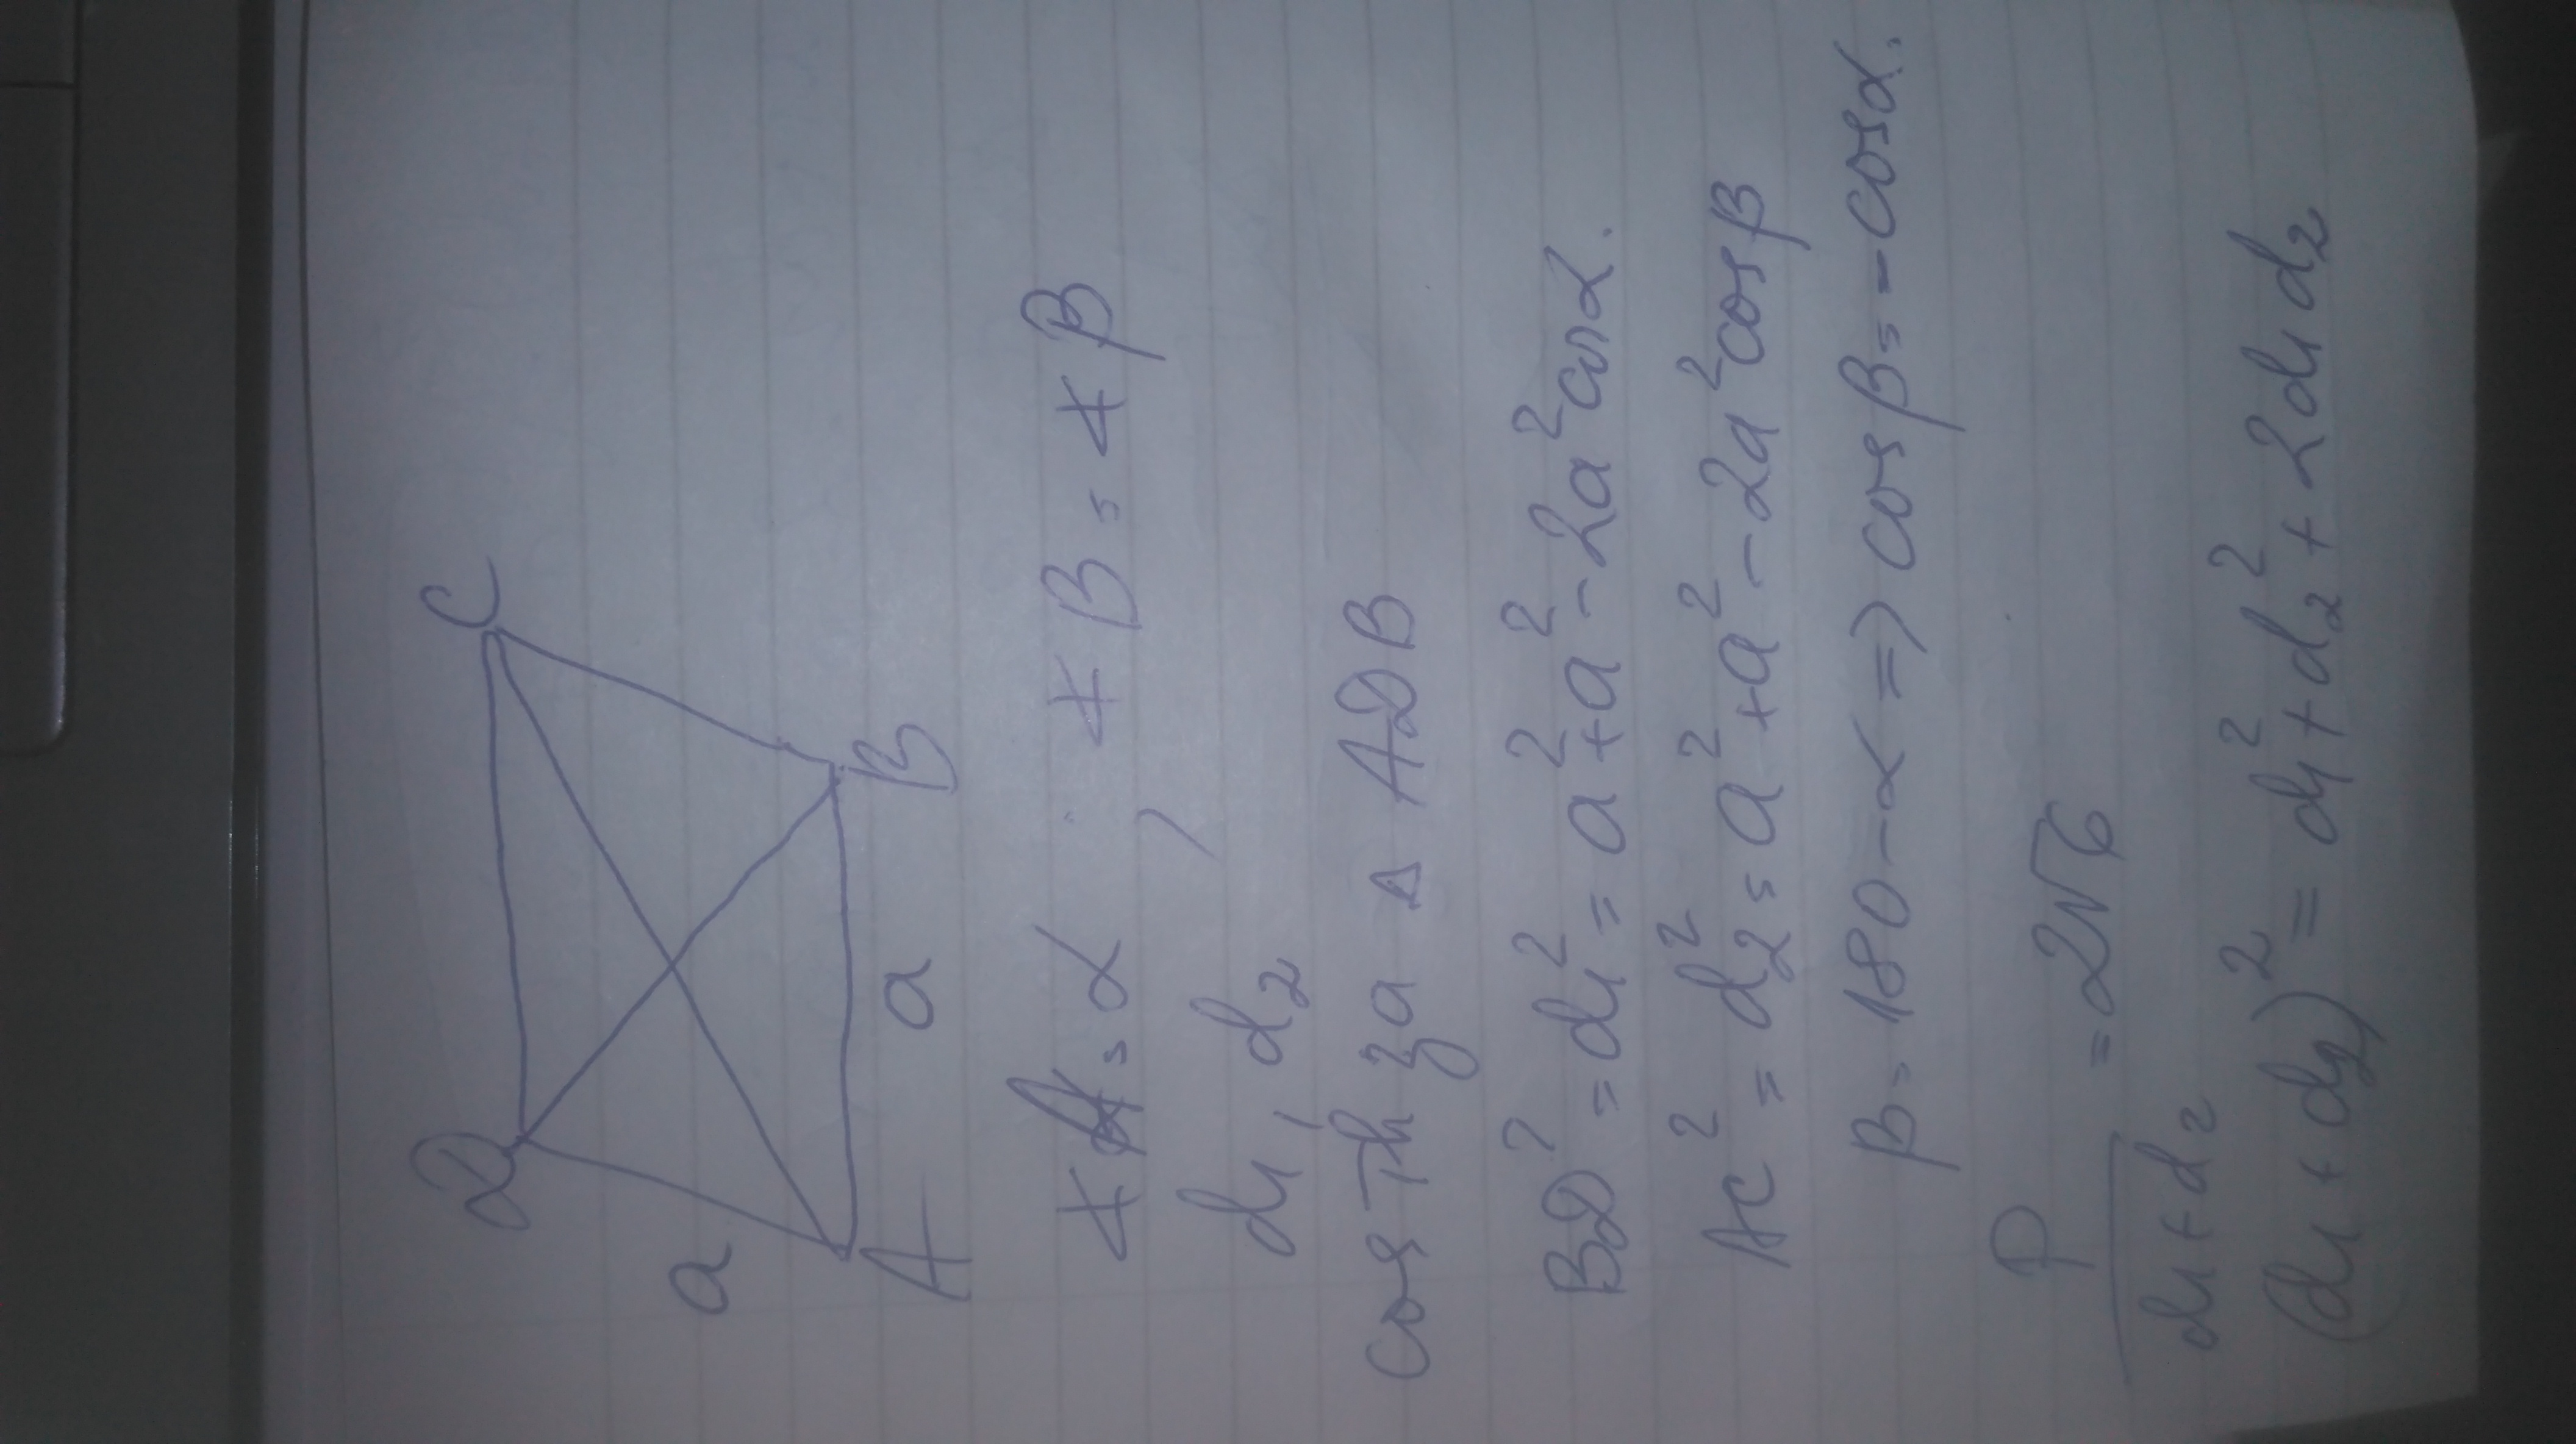 D C
a
A a B
∢A = α, ∢B = ∢β
d₁, d₂
cos Th за Δ ADB
BD² = d₁² = a² + a² - 2a² cos α.
AC² = d₂² = a² + a² - 2a² cos β
β = 180 - α => cos β = - cos α.
P / (d₁ + d₂) = 2√6
(d₁ + d₂)² = d₁² + d₂² + 2d₁d₂